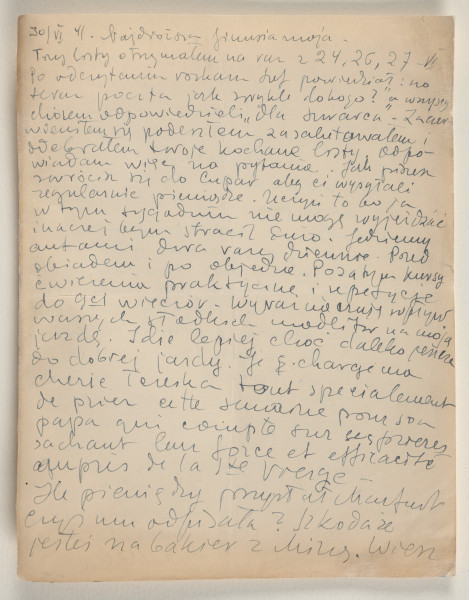 30/VI 41. Najdroższa Niusia moja.
Trzy listy otrzymałem na raz z 24, 26, 27 VI
Po odczytaniu rozkazu szef powiedział: no
teraz poczta jak zwykle dokogo? a wszyscy
chórem odpowiedzieli „dla Szwarca". Zaczer-
wieniłem się podeszłem zasalutowałem i
odebrałem twoje kochane listy, odpo-
wiadam więc na pytania. Jak piszesz
zwrócić się do Cupar aby ci wysyłali
regularnie pieniądze. Uczyń to bo ja
w tym tygodniu nie mogę wyjeżdżać
inaczej bym stracił dużo. Jeździmy
autami dwa razy dziennie. Przed
obiadem i po obiedzie. Pozatym kursy
ćwiczenia praktyczne i repetycje
do 9ej wieczór. Wyraźnie czuję wpływ
waszych słodkich modlitw na moją
jazdę. Idzie lepiej choć daleko jeszcze
do dobrej jazdy. Je charge ma
chérie Tereska tout specialement
de prier cette semaine pour son
papa qui compte sur ses prieres
sachant leur force et efficacité
auprès de la Ste Vierge.
Ile pieniędzy przysłał
czy mu odpisała? Szkoda że
jesteś na bakier z Wiesz